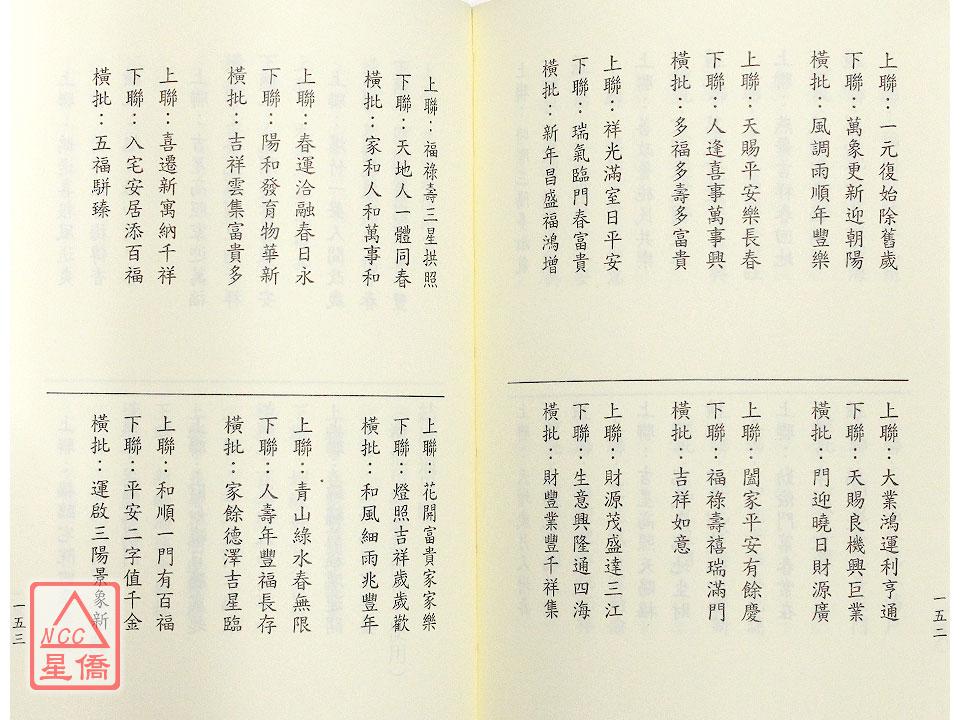 上聯：一元復始除舊歲
下聯：萬象更新迎朝陽
橫批：風調雨順年豐樂
上聯：天賜平安樂長春
下聯：人逢喜事萬事興
橫批：多福多壽多富貴
上聯：祥光滿室日平安
下聯：瑞氣臨門春富貴
橫批：新年昌盛福鴻增
上聯：大業鴻運利亨通
下聯：天賜良機興巨業
橫批：門迎曉日財源廣
上聯：闔家平安有餘慶
下聯：福祿壽禧瑞滿門
橫批：吉祥如意
上聯：財源茂盛達三江
下聯：生意興隆通四海
橫批：財豐業豐千祥集
一五二
上聯：福祿壽三星拱照
下聯：天地人一體同春
橫批：家和人和萬事和
上聯：春運洽融春日永
下聯：陽和發育物華新
橫批：吉祥雲集富貴多
上聯：喜遷新寓納千祥
下聯：入宅安居添百福
橫批：五福駢臻
上聯：花開富貴家家樂
下聯：燈照吉祥歲歲歡
橫批：和風細雨兆豐年
上聯：青山綠水春無限
下聯：人壽年豐福長存
橫批：家餘德澤吉星臨
上聯：和順一門有百福
下聯：平安二字值千金
橫批：運啟三陽景象新
一五三
NCC
星僑